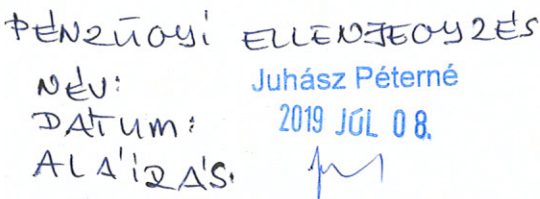 PÉNZÜGYI ELLENJEGYZÉS
NÉV: Juhász Péterné
DÁTUM: 2019 JÚL 08.
ALÁÍRÁS: